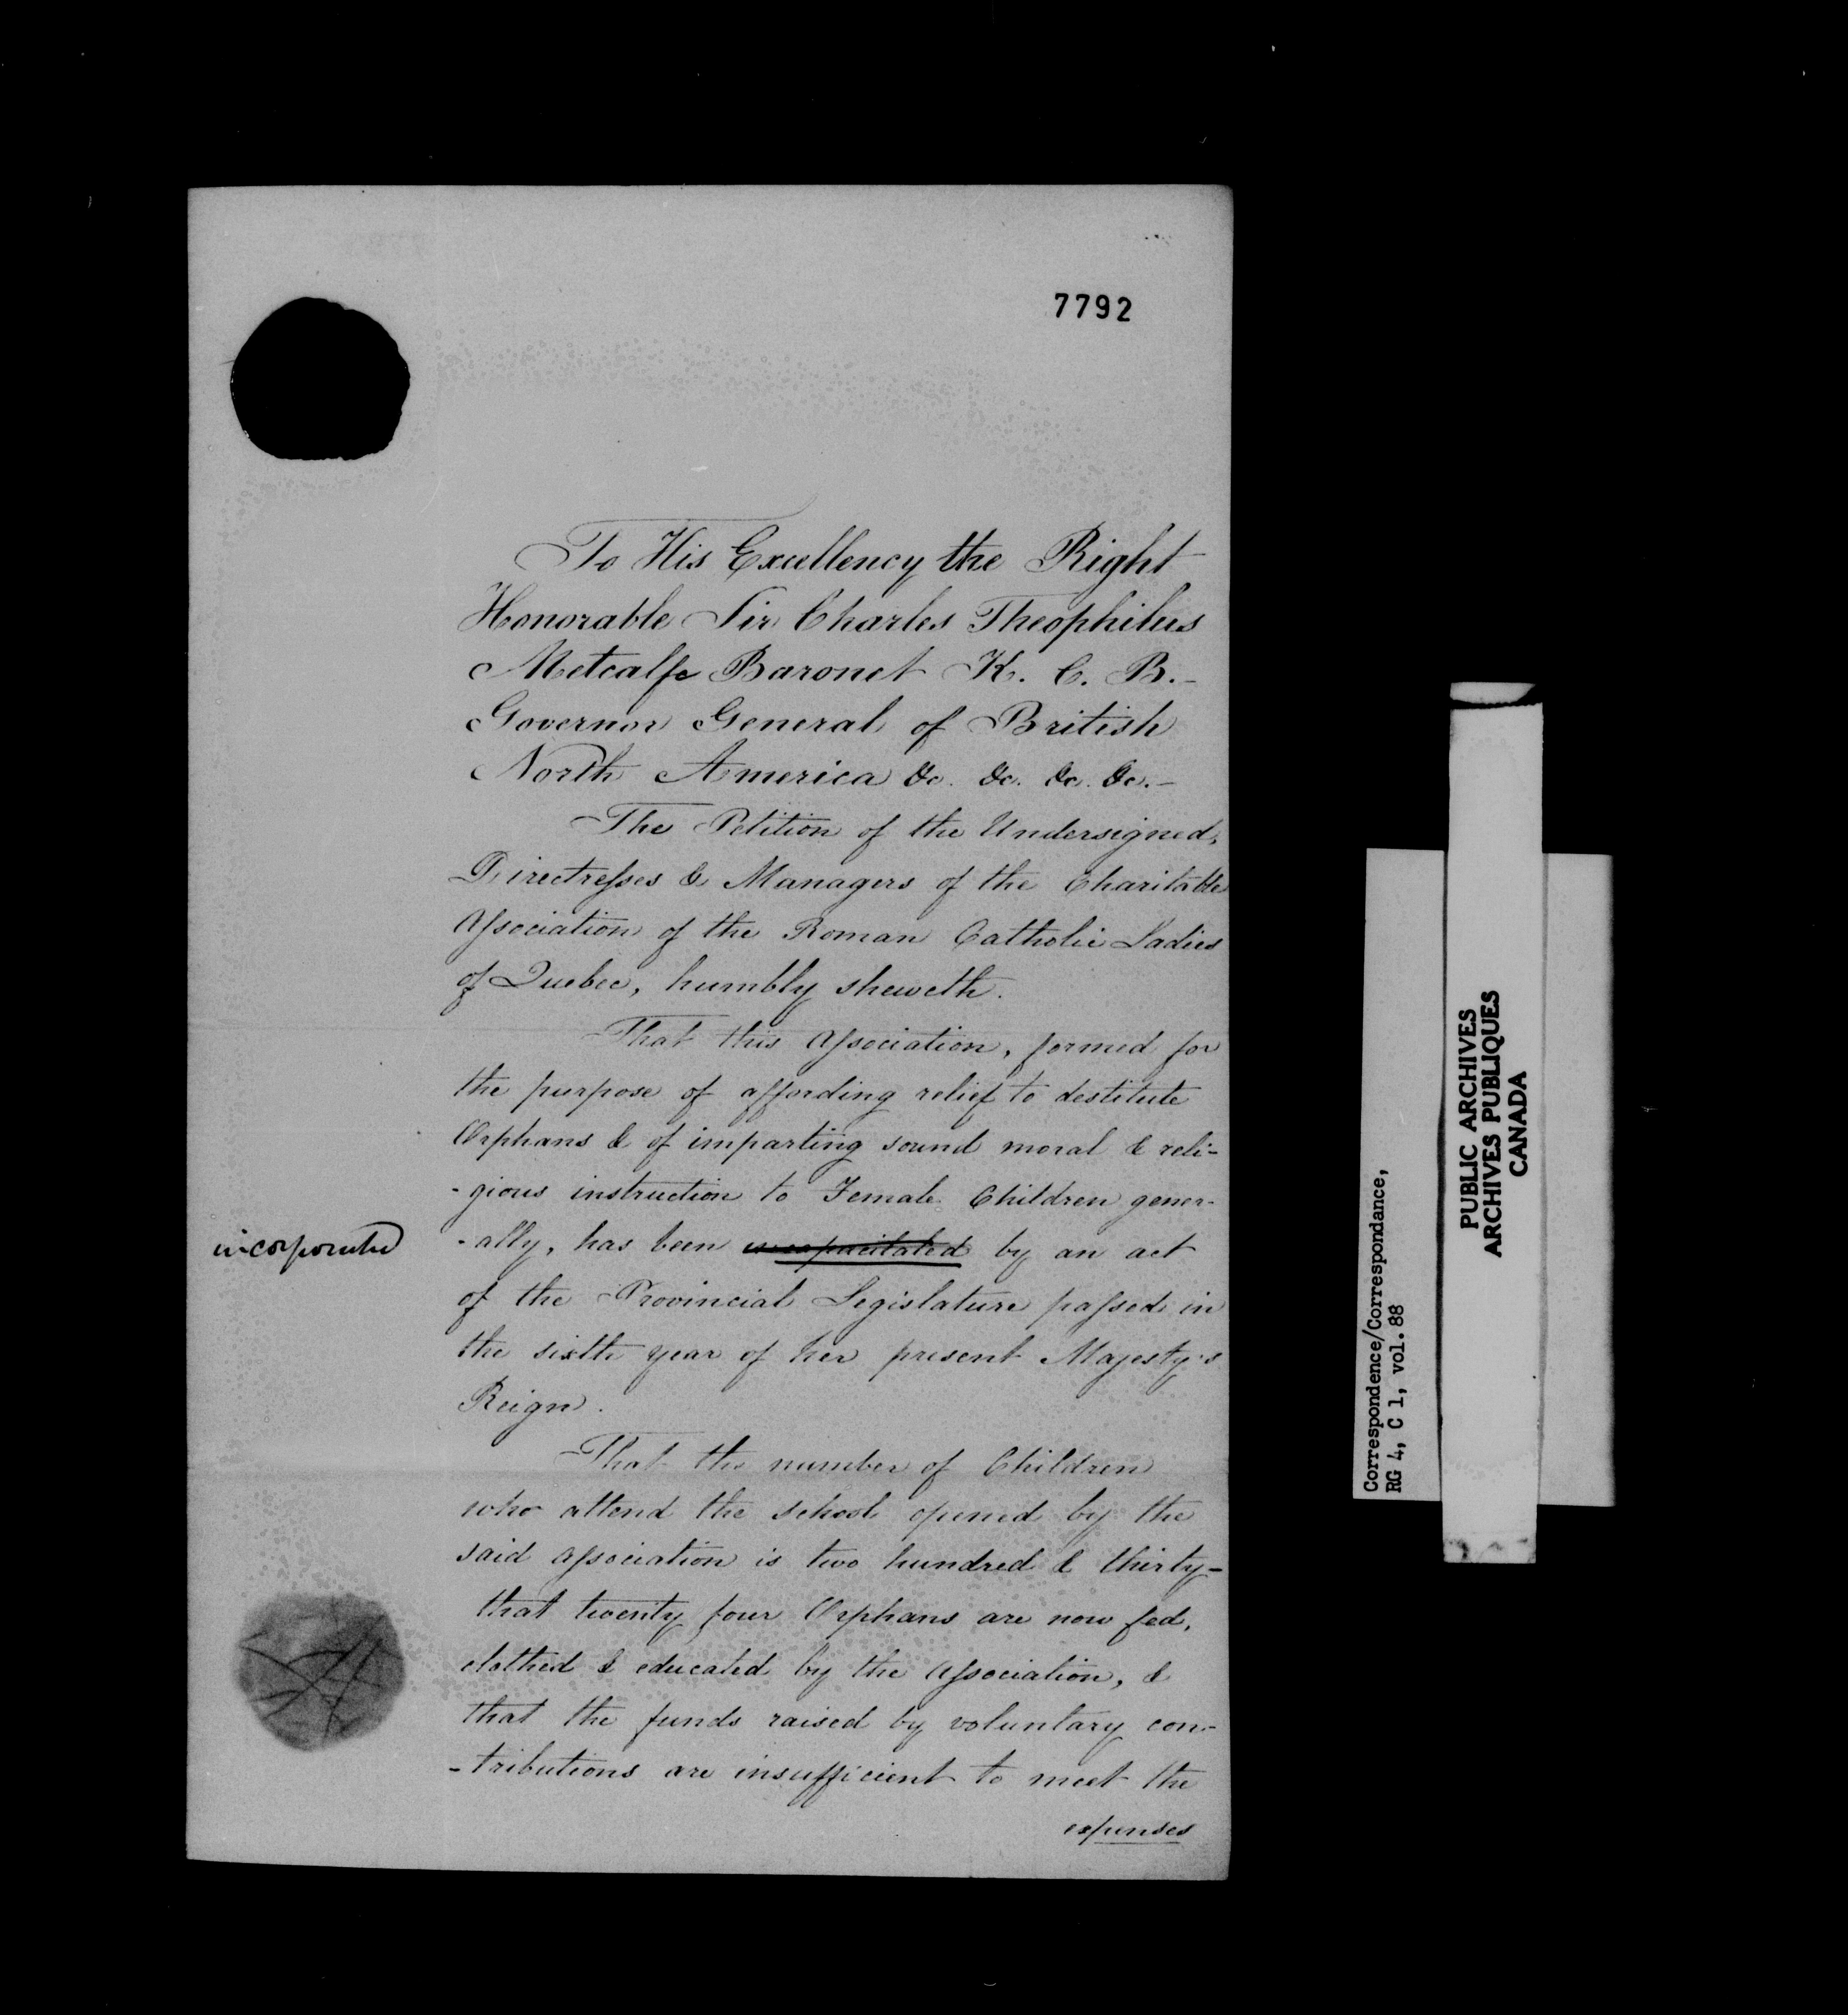 7792
To His Excellency the Right
Honorable Sir Charles Theophilus
Metcalfe Baronet K. C. B.-
Governor General of British
North America &c. &c. &c. &c.-
The Petition of the Undersigned,
Directresses & Managers of the Charitable
Association of the Roman Catholic Ladies
of Quebec, humbly sheweth.
That this Association, formed for
the purpose of affording relief to destitute
Orphans & of imparting sound moral & reli-
-gious instruction to Female Children gener-
incorporated
-ally, has been incapacitated by an act
of the Provincial Legislature passed in
the sixth year of her present Majesty's
Reign.
That the number of Children
who attend the school opened by the
said association is two hundred & thirty-
that twenty four Orphans are now fed,
clothed & educated by the Association, &
that the funds raised by voluntary con-
-tributions are insufficient to meet the
expenses
Correspondence/Correspondance,
RG 4, C 1, vol. 88
PUBLIC ARCHIVES
ARCHIVES PUBLIQUES
CANADA